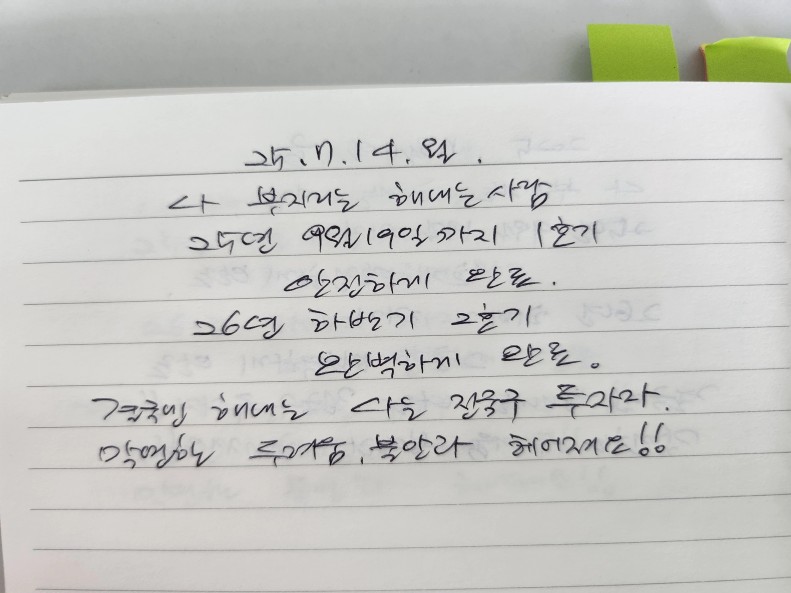 25.7.14.월.
나 부자리는 해내는 사람
25년 9월19일까지 1호기
안전하게 완료.
26년 하반기 2호기
완벽하게 완료.
결국엔 해내는 나는 전국구 투자자.
막연한 두려움, 불안과 헤어져요!!